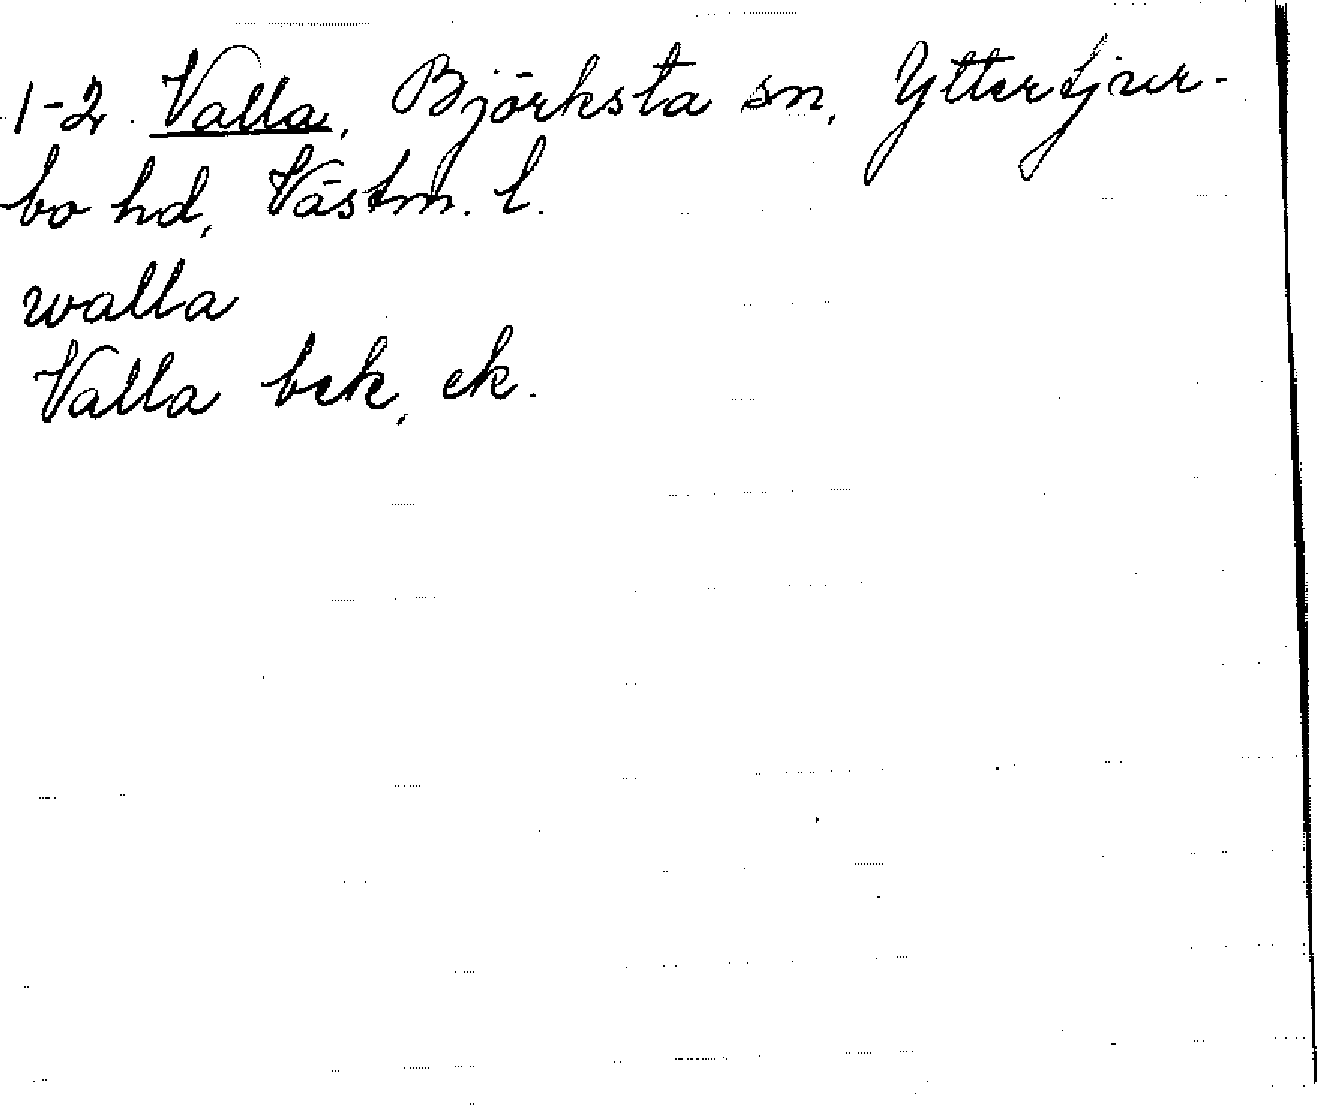 1-2. Valla, Björksta sn, Yttertjur-
bo hd, Västm. l.
walla
Valla bek, ek.